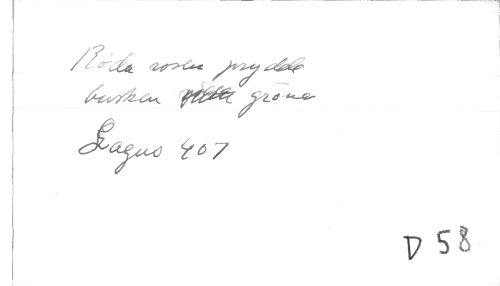 Röda rosen prydde
busken gröna
Lagus 407
D 58